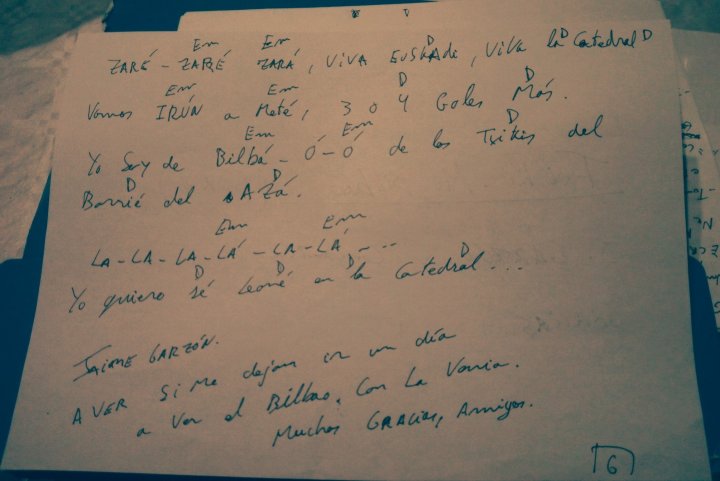 Em Em D D D
ZARÉ - ZARÉ ZARÁ, ViVA EUSKADi, ViVA la Catedral
Em Em D D
Vamos IRÚN a Meté, 3 o 4 Goles Más.
Em Em D
Yo Soy de Bilbá - Ó - Ó de los Txikis del
D D
Barrié del AZÁ.
Em Em
LA - LA - LA - LÁ - LA - LÁ - ...
D D D D
Yo quiero sé Leoné en la Catedral...
JAIME GARZÓN.
A VER Si Me dejan ir un día
a Ver el Bilbao. Con La
Muchas GRACIAS, Amigos.
6